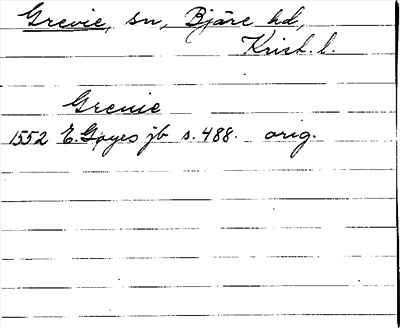 Grevie, sn, Bjäre hd,
Krist. l.
Greuie
1552 E. Gøyes jb s. 488. orig.